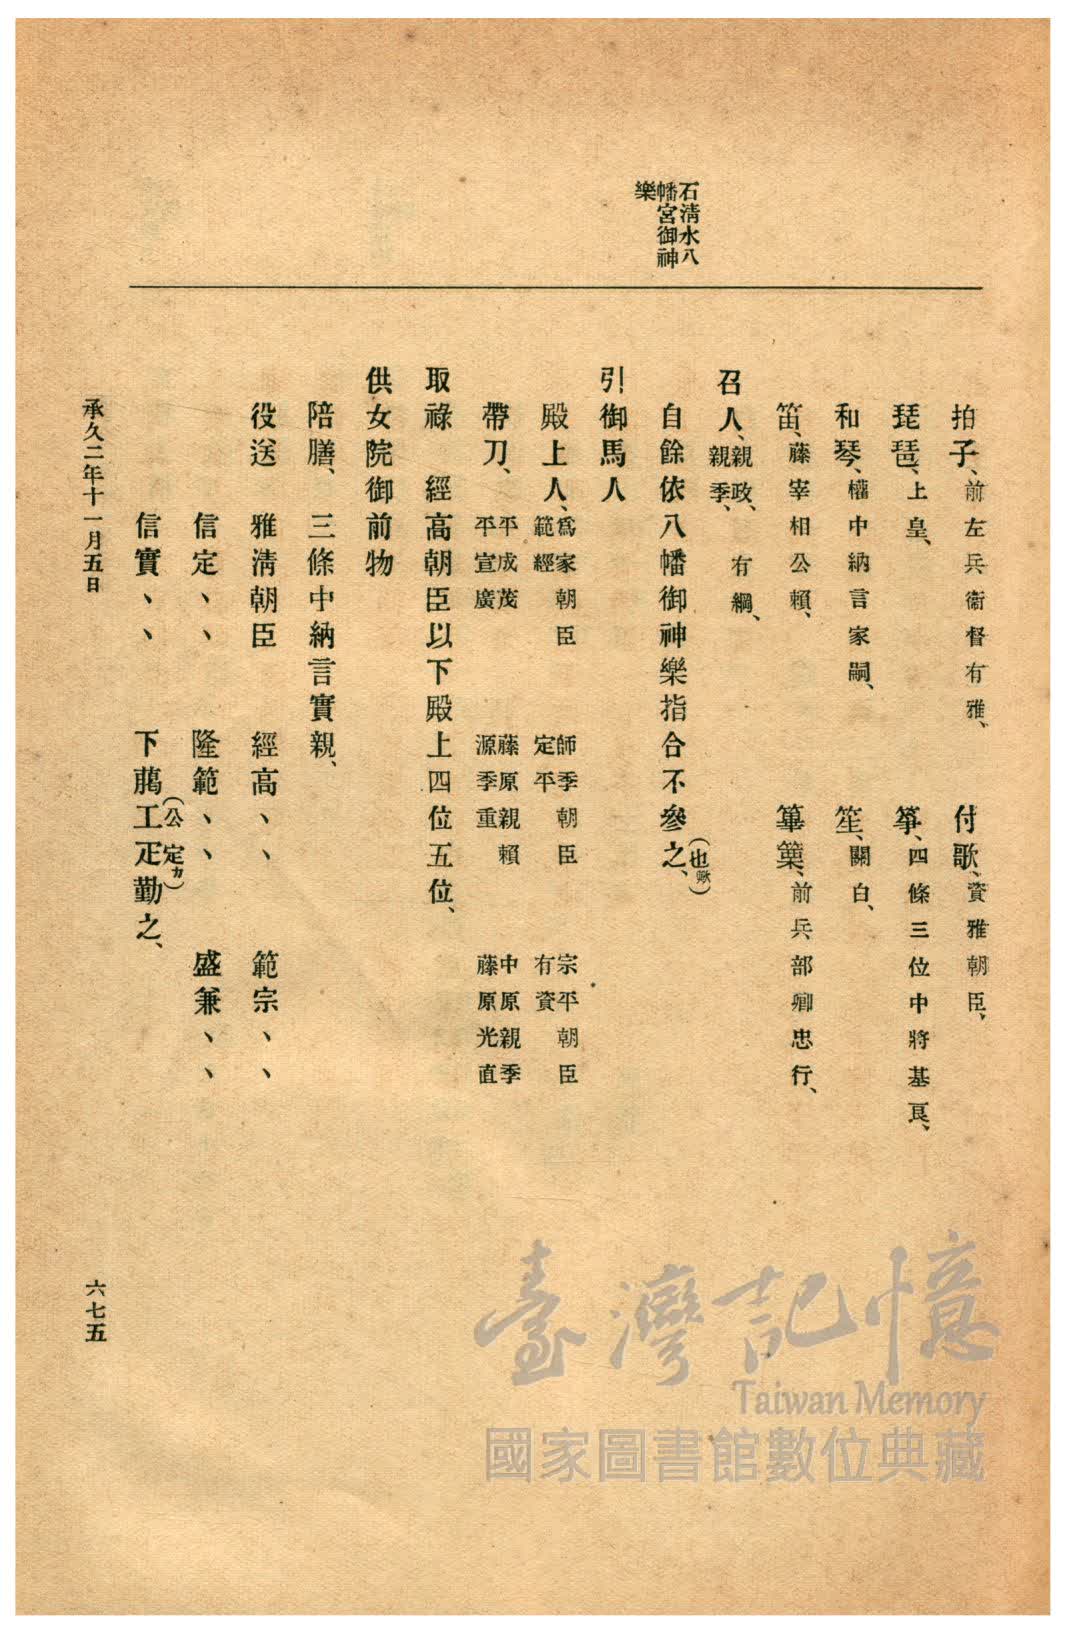 石清水八
幡宮御神
樂
拍子、前左兵衞督有雅、　付歌、資雅朝臣、
琵琶、上皇、　箏、四條三位中將基良、
和琴、權中納言家嗣、　笙、關白、
笛、藤宰相公賴、　篳篥、前兵部卿忠行、
召人、親政、　有綱、
親季、
自餘依八幡御神樂指合不參之、(也歟)
引御馬人
殿上人、爲家朝臣　師季朝臣　宗平朝臣
範經　定平　有資
帶刀、平成茂　藤原親賴　中原親季
平宣廣　源季重　藤原光直
取祿　經高朝臣以下殿上四位五位、
供女院御前物
陪膳、三條中納言實親、
役送　雅淸朝臣　經高、、　範宗、、
信定、、　隆範、、　盛兼、、
信實、、　下﨟工疋勤之、(公定カ)
承久二年十一月五日
六七五
臺灣記憶
Taiwan Memory
國家圖書館數位典藏